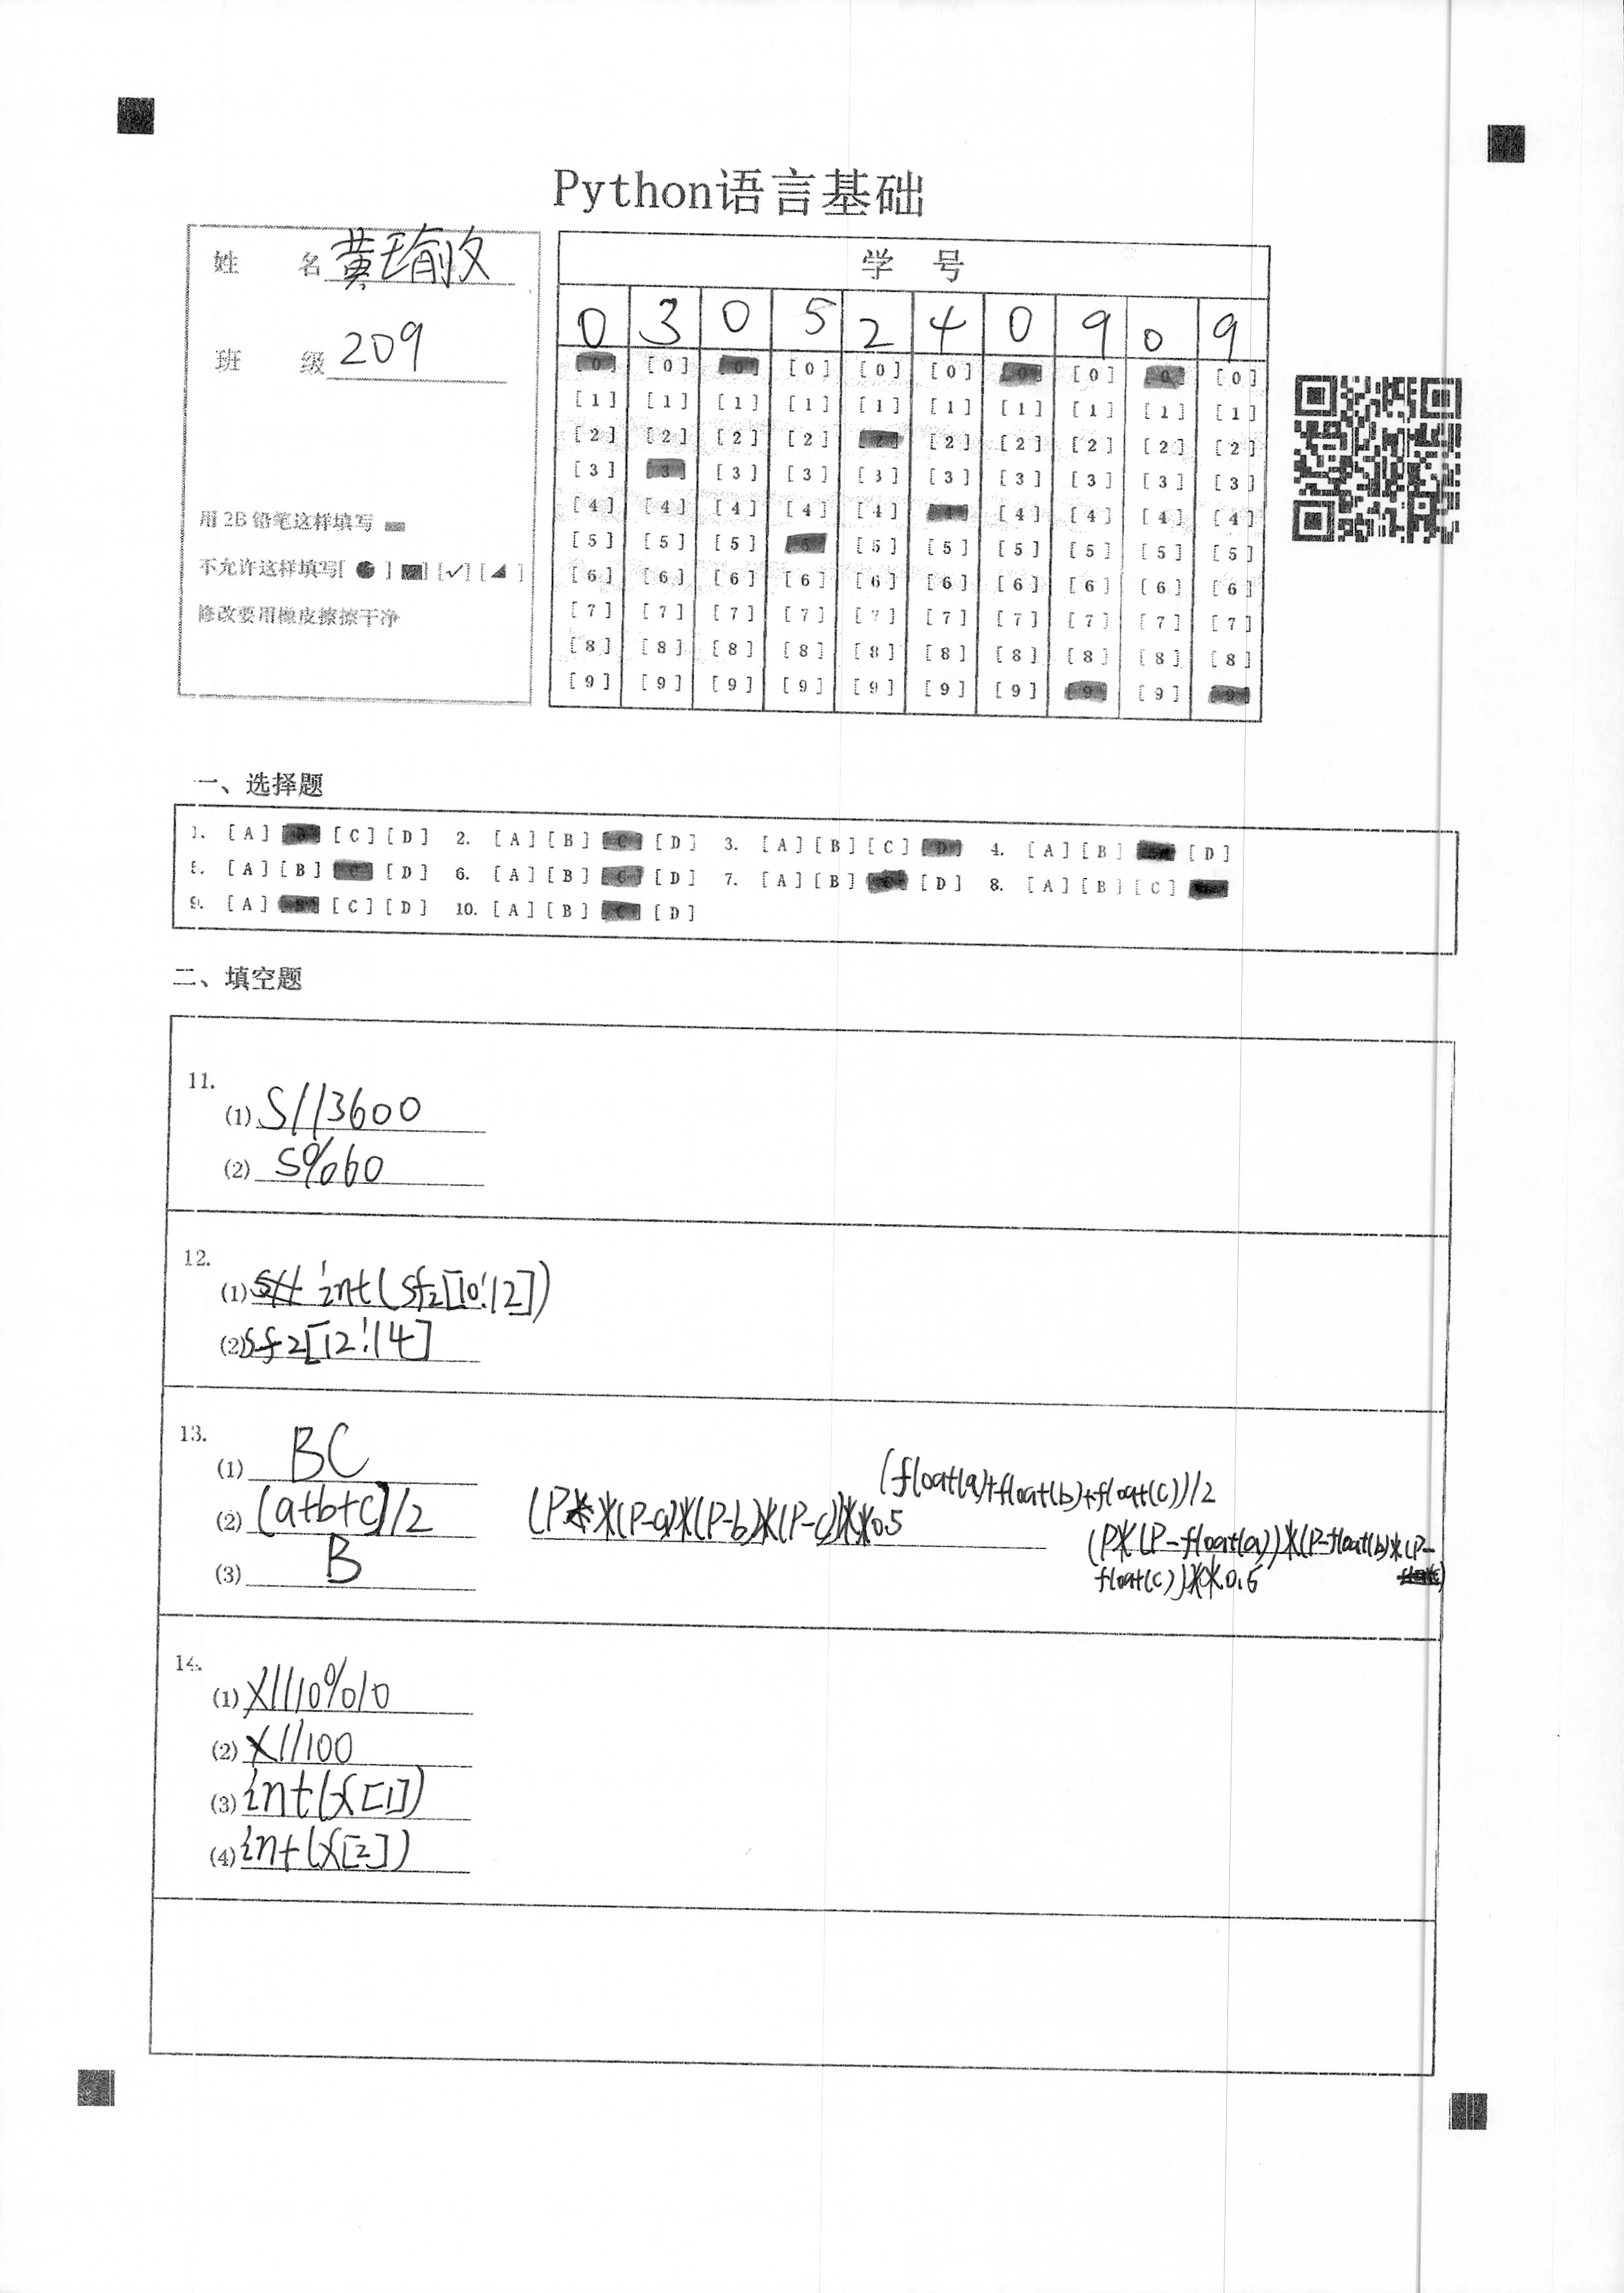 Python语言基础
姓 名 黄瑜汝
班 级 209
用 2B 铅笔这样填写
不允许这样填写[ ● ] [■] [✓] [◢ ]
修改要用橡皮擦擦干净
学 号
0 3 0 5 2 4 0 9 0 9
[0] [0] [0] [0] [0] [0] [0] [0] [0] [0]
[1] [1] [1] [1] [1] [1] [1] [1] [1] [1]
[2] [2] [2] [2] [2] [2] [2] [2] [2] [2]
[3] [3] [3] [3] [3] [3] [3] [3] [3] [3]
[4] [4] [4] [4] [4] [4] [4] [4] [4] [4]
[5] [5] [5] [5] [5] [5] [5] [5] [5] [5]
[6] [6] [6] [6] [6] [6] [6] [6] [6] [6]
[7] [7] [7] [7] [7] [7] [7] [7] [7] [7]
[8] [8] [8] [8] [8] [8] [8] [8] [8] [8]
[9] [9] [9] [9] [9] [9] [9] [9] [9] [9]
一、选择题
1. [A] [B] [C] [D] 2. [A] [B] [C] [D] 3. [A] [B] [C] [D] 4. [A] [B] [C] [D]
5. [A] [B] [C] [D] 6. [A] [B] [C] [D] 7. [A] [B] [C] [D] 8. [A] [B] [C] [D]
9. [A] [B] [C] [D] 10. [A] [B] [C] [D]
二、填空题
11.
(1) S//3600
(2) S%60
12.
(1) int(sfz[10:12])
(2) sfz[12:14]
13.
(1) BC
(2) (a+b+c)/2
(P*(P-a)*(P-b)*(P-c))**0.5
(float(a)+float(b)+float(c))/2
(P*(P-float(a))*(P-float(b)*(P-
float(c))**0.5
(3) B
14.
(1) X//10%10
(2) X//100
(3) int(x[1])
(4) int(x[2])